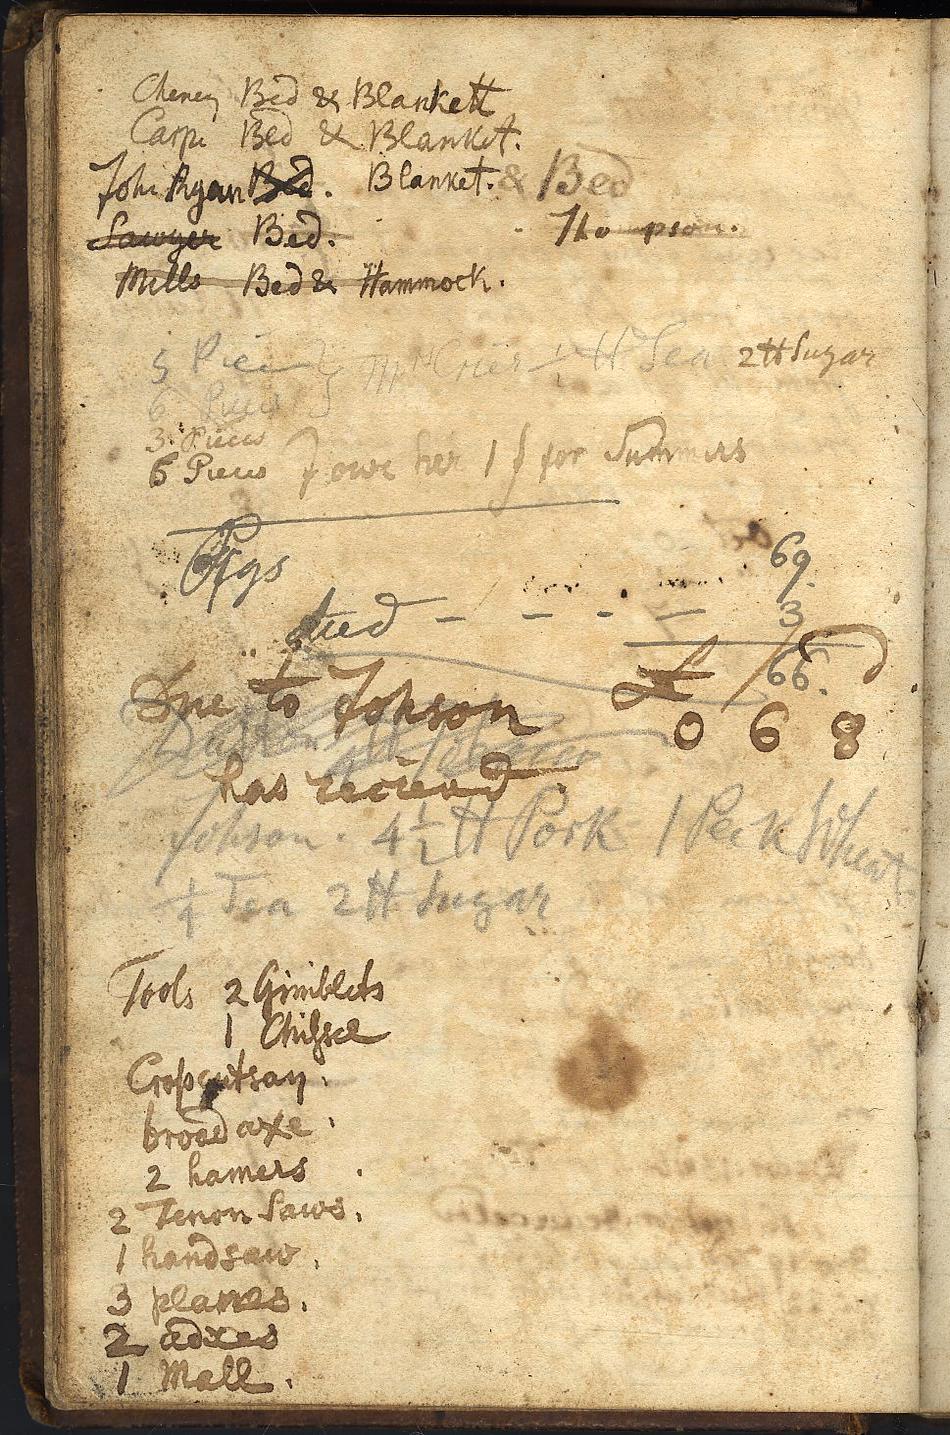 Cheney Bed & Blankett
Carpr Bed & Blanket.
John Ryan Bed. Blanket. & Bed
Sawyer Bed. Thompson.
Mills Bed & Hammock.
5 Piec Tea 2 tt Sugar
6 Pieces
3 Pieces
6 Pieces I owe her 1 for Summers
Pigs 69.
died - - - - - 3
66.
Due to Johson £
0 6 8
has recieved
Johson. 4½ tt Pork 1 Peck Wheat
¼ Tea 2 tt Sugar
Tools 2 Gimblets
1 Chissel
Cropcutsaw.
broad axe.
2 hamers
2 Tenon Saws.
1 handsaw.
3 planes.
2 adxes
1 Mall.